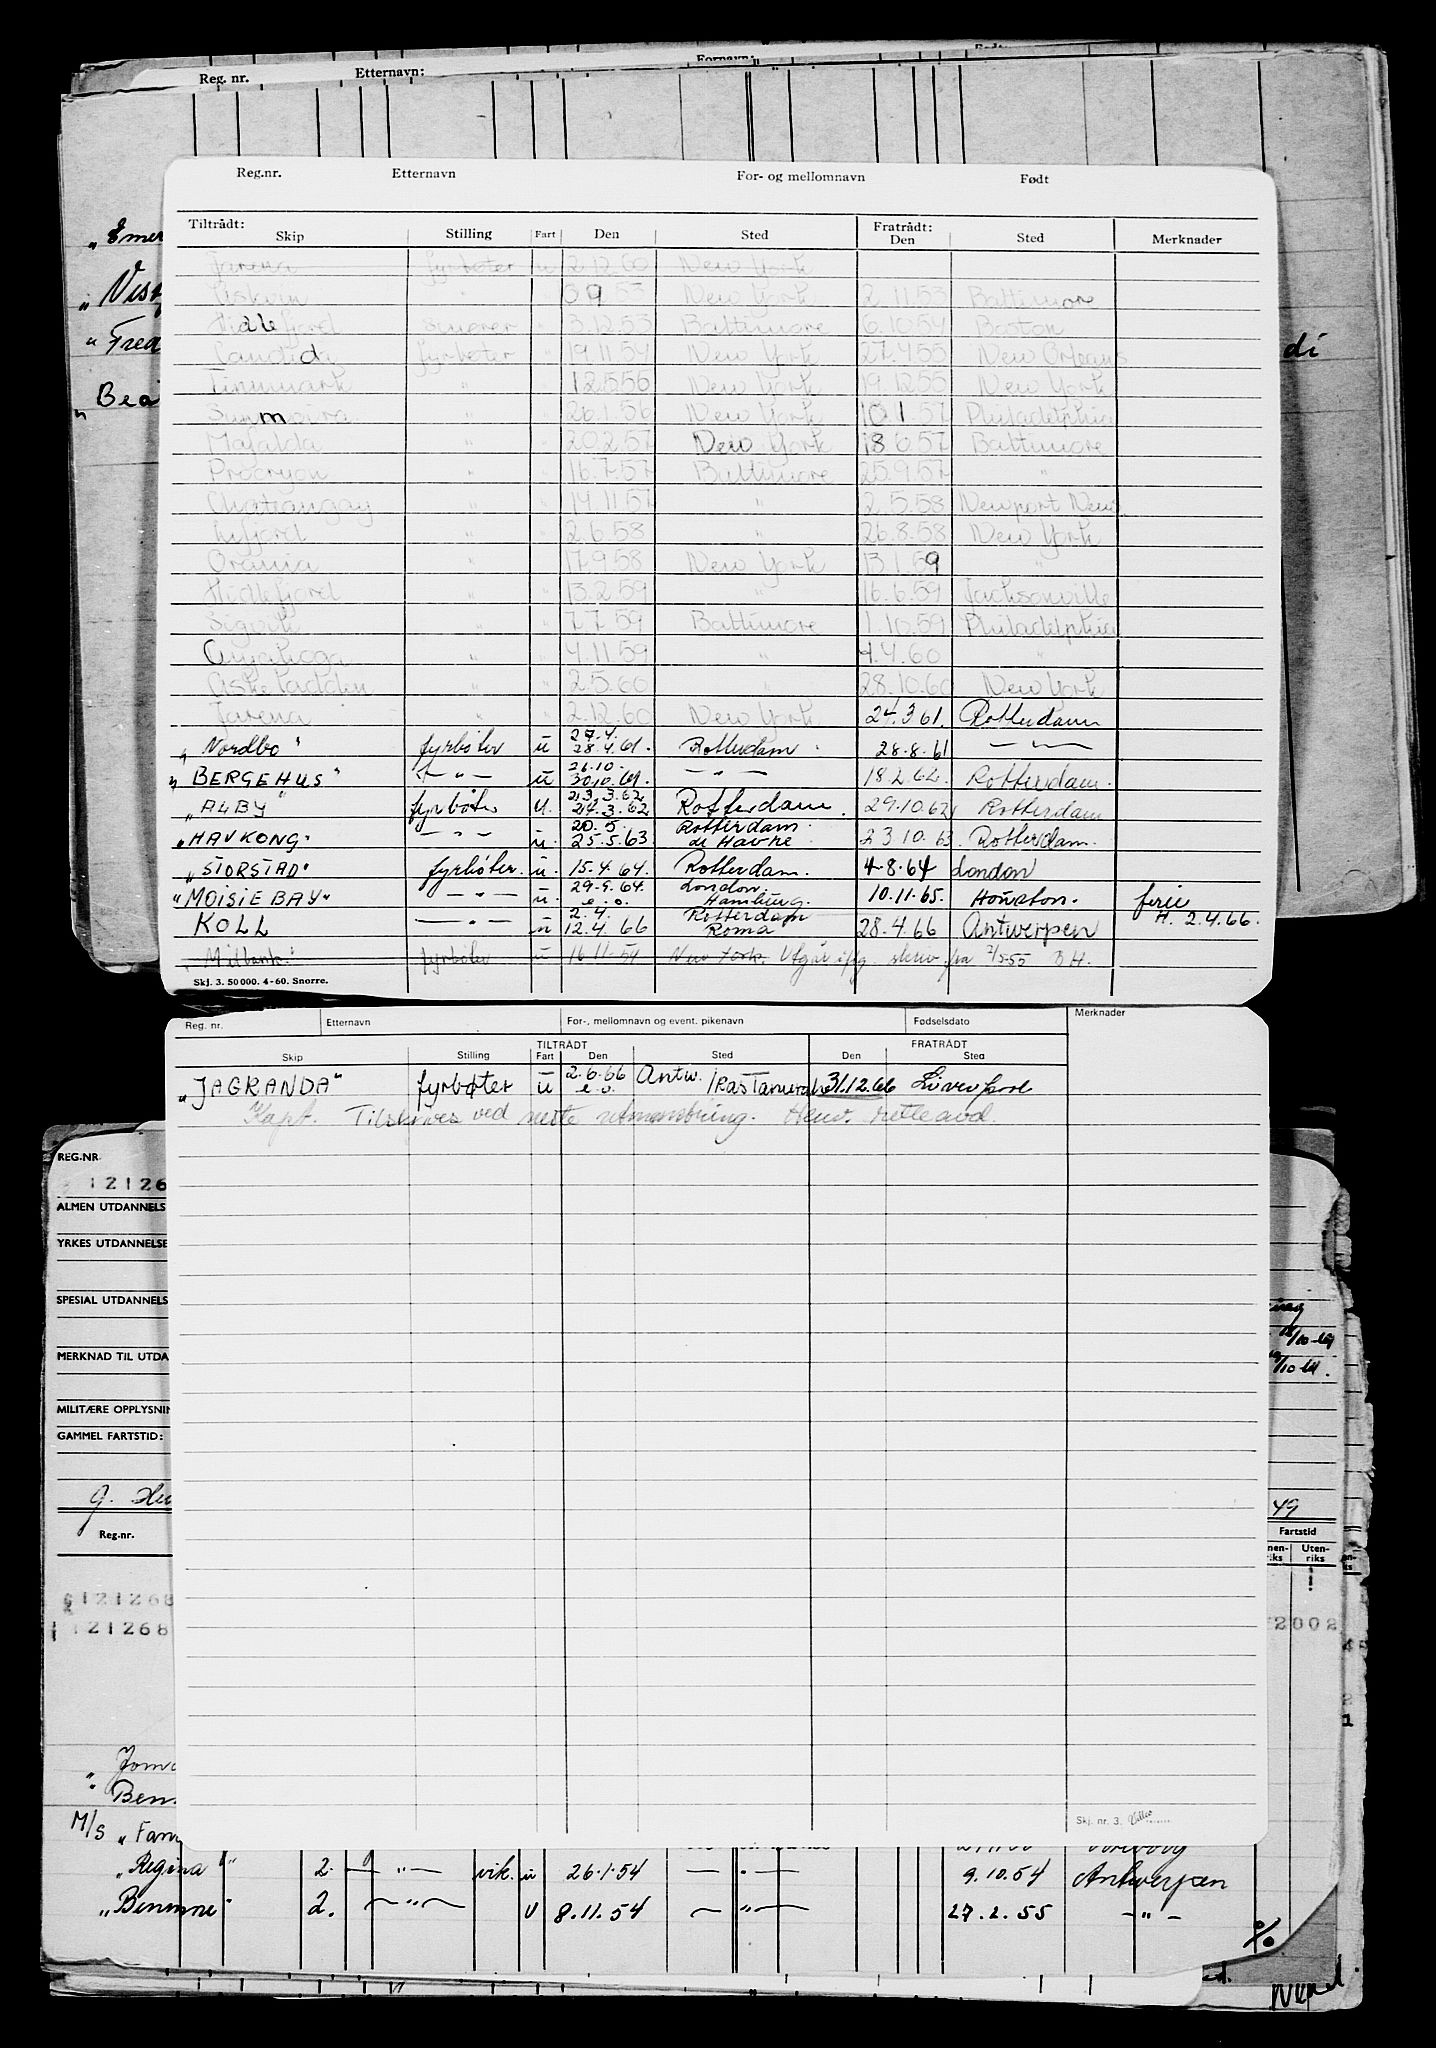 Reg. nr. Etternavn: Fornavn: Født
Reg.nr. Etternavn For- og mellomnavn Født
Tiltrådt: Fratrådt:
Skip Stilling Fart Den Sted Den Sted Merknader
Jarena fyrbøter u 2.12.60 New York
53 New York 2.11.53 Baltimore
Hidlefjord smører " 3.12.53 Baltimore 6.10.54 Boston
Candida fyrbøter " 19.11.54 New York 27.4.55 New Orleans
Finnmark " " 12.5.55 New York 19.12.55 New York
" " 26.1.56 New York 10.1.57 Philadelphia
Mafalda " " 20.2.57 New York 18.6.57 Baltimore
Procyon " " 16.7.57 Baltimore 25.9.57 "
Chateaugay " " 14.11.57 " 2.5.58 Newport News
" " 2.6.58 " 26.8.58 New York
Orania " " 17.9.58 New York 13.1.59 "
Hidlefjord " " 13.2.59 " 16.6.59 Jacksonville
Sigvik " " 7.7.59 Baltimore 1.10.59 Philadelphia
" " 4.11.59 " 4.4.60 "
Askeladden " " 2.5.60 " 28.10.60 New York
Jarena " " 2.12.60 New York 24.3.61. Rotterdam
"Nordbo" fyrbøter u 27.4. 28.4.61. Rotterdam 28.8.61 — " —
"BERGEHUS" — " — u 26.10. 30.10.61. — " — 18.2.62 Rotterdam.
"ALBY" fyrbøter u. 23.3.62 24.3.62 Rotterdam. 29.10.62 Rotterdam
"HAVKONG" — " — u. 20.5. 25.5.63 Rotterdam. le Havre 23.10.63. Rotterdam.
"STORSTAD" fyrbøter. u. 15.4.64. Rotterdam. 4-8-64 London
"MOISIE BAY" — " — u. 29.9.64. e.o. London. Hamburg. 10.11.65. Houston. ferie
KOLL — " — u 2.4. 12.4.66 Rotterdam Roma 28.4.66 Antwerpen H. 2.4.66.
"Milbank" fyrbøter u 16.11.54 New York. Utgår ifg. skriv. fra 7/5-55 B H.
Skj. 3. 50 000. 4-60. Snorre.
Reg. nr. Etternavn For-, mellomnavn og event. pikenavn Fødselsdato Merknader
TILTRÅDT FRATRÅDT
Skip Stilling Fart Den Sted Den Sted
"JAGRANDA" fyrbøter u 2.6.66 e.o. Antw. /Ras Tanura 31.12.66 Liverpool
Kapt. Tilskrives ved neste utmønstring. Henv. rette avd.
REG.NR.
12126
ALMEN UTDANNELS
YRKES UTDANNELSE
SPECIAL UTDANNELS
MERKNAD TIL UTDA
MILITÆRE OPPLYSNIN
GAMMEL FARTSTID:
Reg.nr. 49
Fartstid
Uten-
riks
121268
121268 2002
Skj. nr. 3.
M/S "Fan
"Regina" 2. — " — vik. u 26.1.54 — " — 9.10.54 Antwerpen
"Benmore" 2. — " — u 8.11.54 — " — 27.2.55 — " —